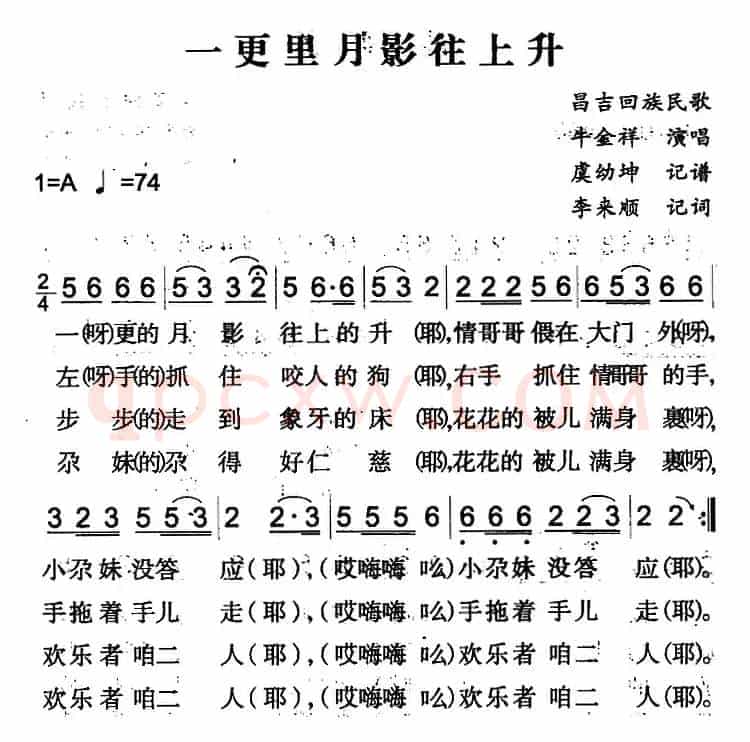 一更里月影往上升
昌吉回族民歌
牛金祥 演唱
1=A ♩=74
虞幼坤 记谱
李来顺 记词
2/4 5 6 6 6 | 5 3 3 2 | 5 6·6 | 5 3 2 | 2 222 5 6 | 6 53 6 6 |
一(呀)更的 月 影 往上的 升 (耶),情哥哥 偎在 大门 外(呀),
左(呀)手(的)抓 住 咬人的 狗 (耶),右手 抓住 情哥哥 的手,
步 步(的)走 到 象牙的 床 (耶),花花的 被儿 满身 裹(呀),
尕 妹(的)尕 得 好仁 慈 (耶),花花的 被儿 满身 裹(呀),
qpcxw.com
3 23 5 5·3 | 2 2·3 | 5 55 5 6 | 6 66 2 23 | 2 2 :|
小尕妹 没答 应(耶),(哎嗨嗨 么)小尕妹 没答 应(耶)。
手拖着 手儿 走(耶),(哎嗨嗨 么)手拖着 手儿 走(耶)。
欢乐者 咱二 人(耶),(哎嗨嗨 么)欢乐者 咱二 人(耶)。
欢乐者 咱二 人(耶),(哎嗨嗨 么)欢乐者 咱二 人(耶)。